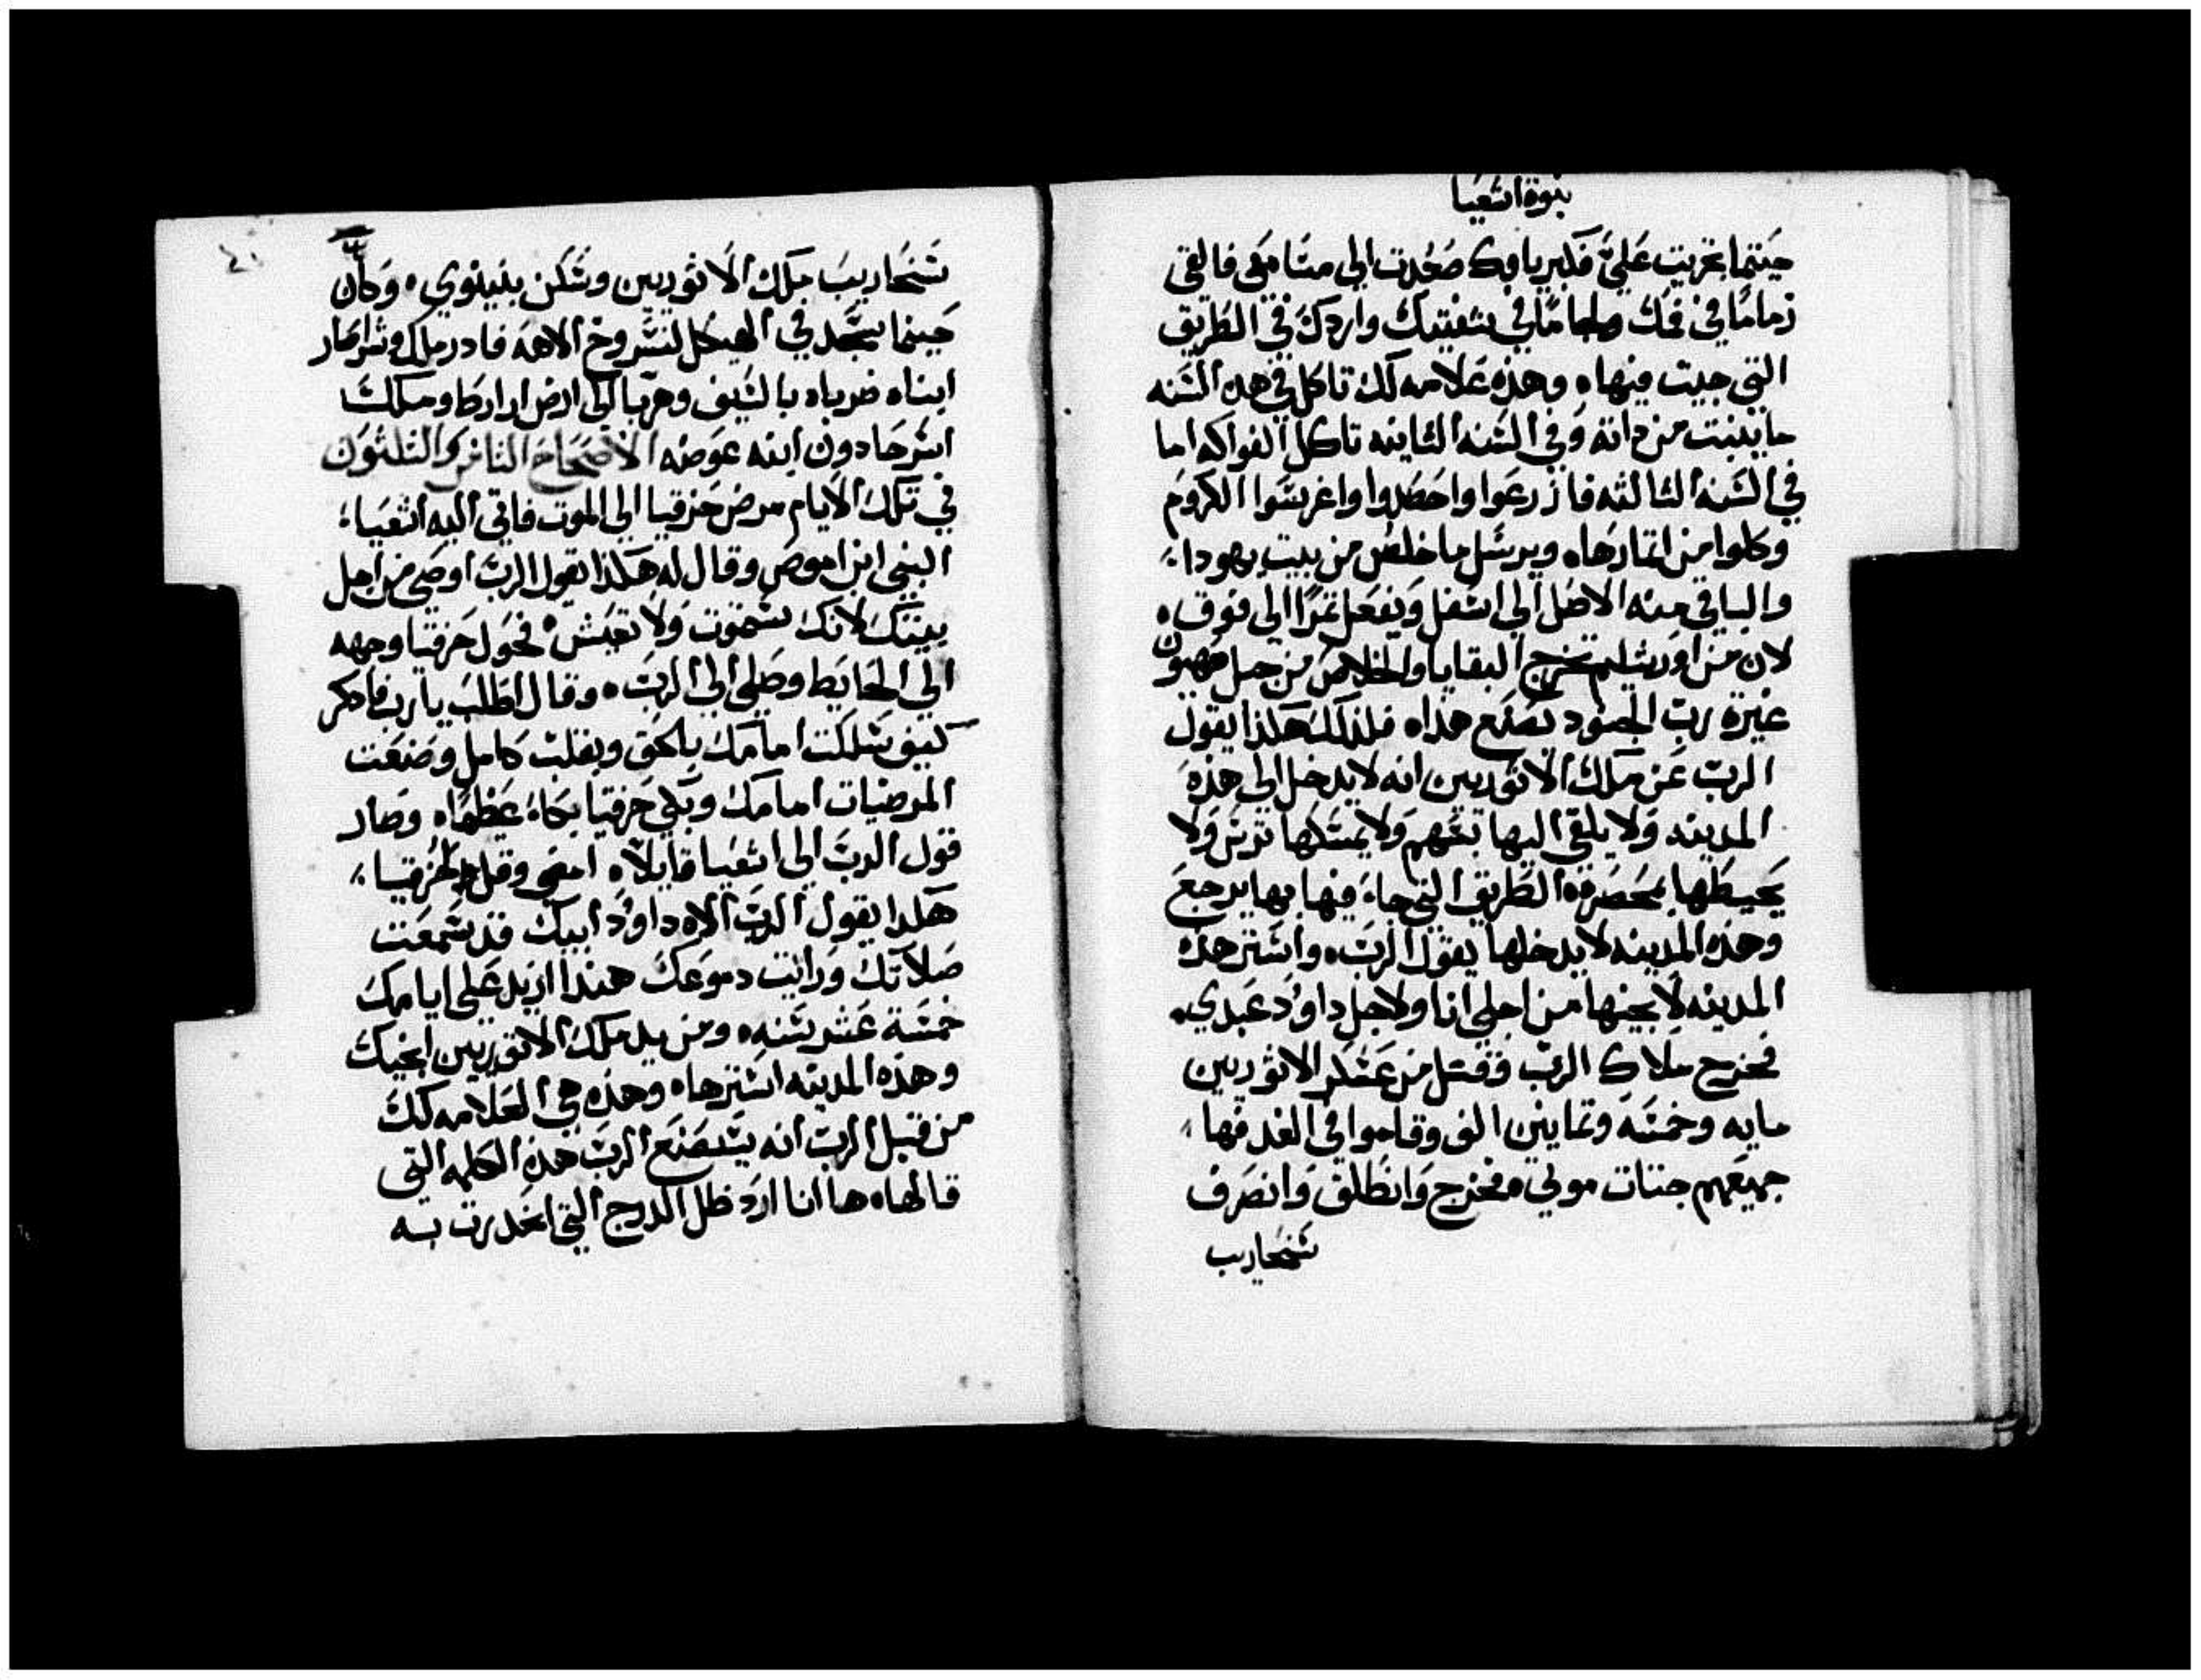 نبوة اشعيا
حينما غزيت عليَّ فكبرياوك صعدت الي مسامعي فالقي
زمامًا في فمك ولجامًا في شفتيك واردك في الطريق
التي جيت منها ٥ وهذه علامه لك تاكل في هده السنه
ما ينبت من داته وفي السنه الثانيه تاكل الفواكه اما
في السنه الثالثه فازرعوا واحصدوا واغرسوا الكروم
وكلوا من اثمارها ٥ ويرسل ما خلص من بيت يهودا ؞
والباقي منه الاصل الي اسفل ويفعل ثمرًا الي فوق ٥
لان من اورشليم تخرج البقايا والخلاص من جبل صهيون
غيرة رب الجنود تصنع هذا ٥ فلذلك هكذا يقول
الرب عن ملك الاثوريين انه لا يدخل الي هذه
المدينه ولا يلقي اليها سهم ولا يمسكها ترس ولا
يحيطها بمحصره الطريق التي جاء فيها بها يرجع
وهذه المدينه لا يدخلها يقول الرب ٥ واستر هذه
المدينه لانجيها من اجلي انا ولاجل داوُد عبدي ٠
فخرج ملاك الرب وقتل من عسكر الاثوريين
مايه وخمسه وثمانين الف وقاموا في الغد فها
جميعهم جثات موتي ٥ فخرج وانطلق وانصرف
سنحاريب
٤١
سنحاريب ملك الاثوريين وسكن بنينوي ٠ وكان
حينما يسجد في الهيكل لنسروخ الاهه فادرملك وشراصار
ابناه ضرباه بالسيف وهربا الي ارض اراراط وملك
اسرحادون ابنه عوضه الاصحاح الثامن والثلثون
في تلك الايام مرض حزقيا الي الموت فاتي اليه اشعيا ؞
النبي ابن اموص وقال له هكذا يقول الرب اوصي من اجل
بيتك لانك ستموت ولا تعيش ٠ فحول حزقيا وجهه
الي الحايط وصلي الي الرب ٥ وقال اطلب يا رب فادكر
كيف سلكت امامك بالحق وبقلب كامل وصنعت
المرضيات امامك وبكي حزقيا بكاء عظيمًا ٥ وصار
قول الرب الي اشعيا قايلًا ٥ امضي وقل لحزقيا ؞
هكدا يقول الرب الاه داوُد ابيك قد سمعت
صلاتك ورايت دموعك هندا ازيد علي ايامك
خمسة عشر سنه ٥ ومن يد ملك الاثوريين انجيك
وهذه المدينه استرها ٥ وهذه هي العلامه لك
من قبل الرب انه سيصنع الرب هذه الكلمه التي
قالها ٥ ها انا ارد ظل الدرج التي انحدرت به